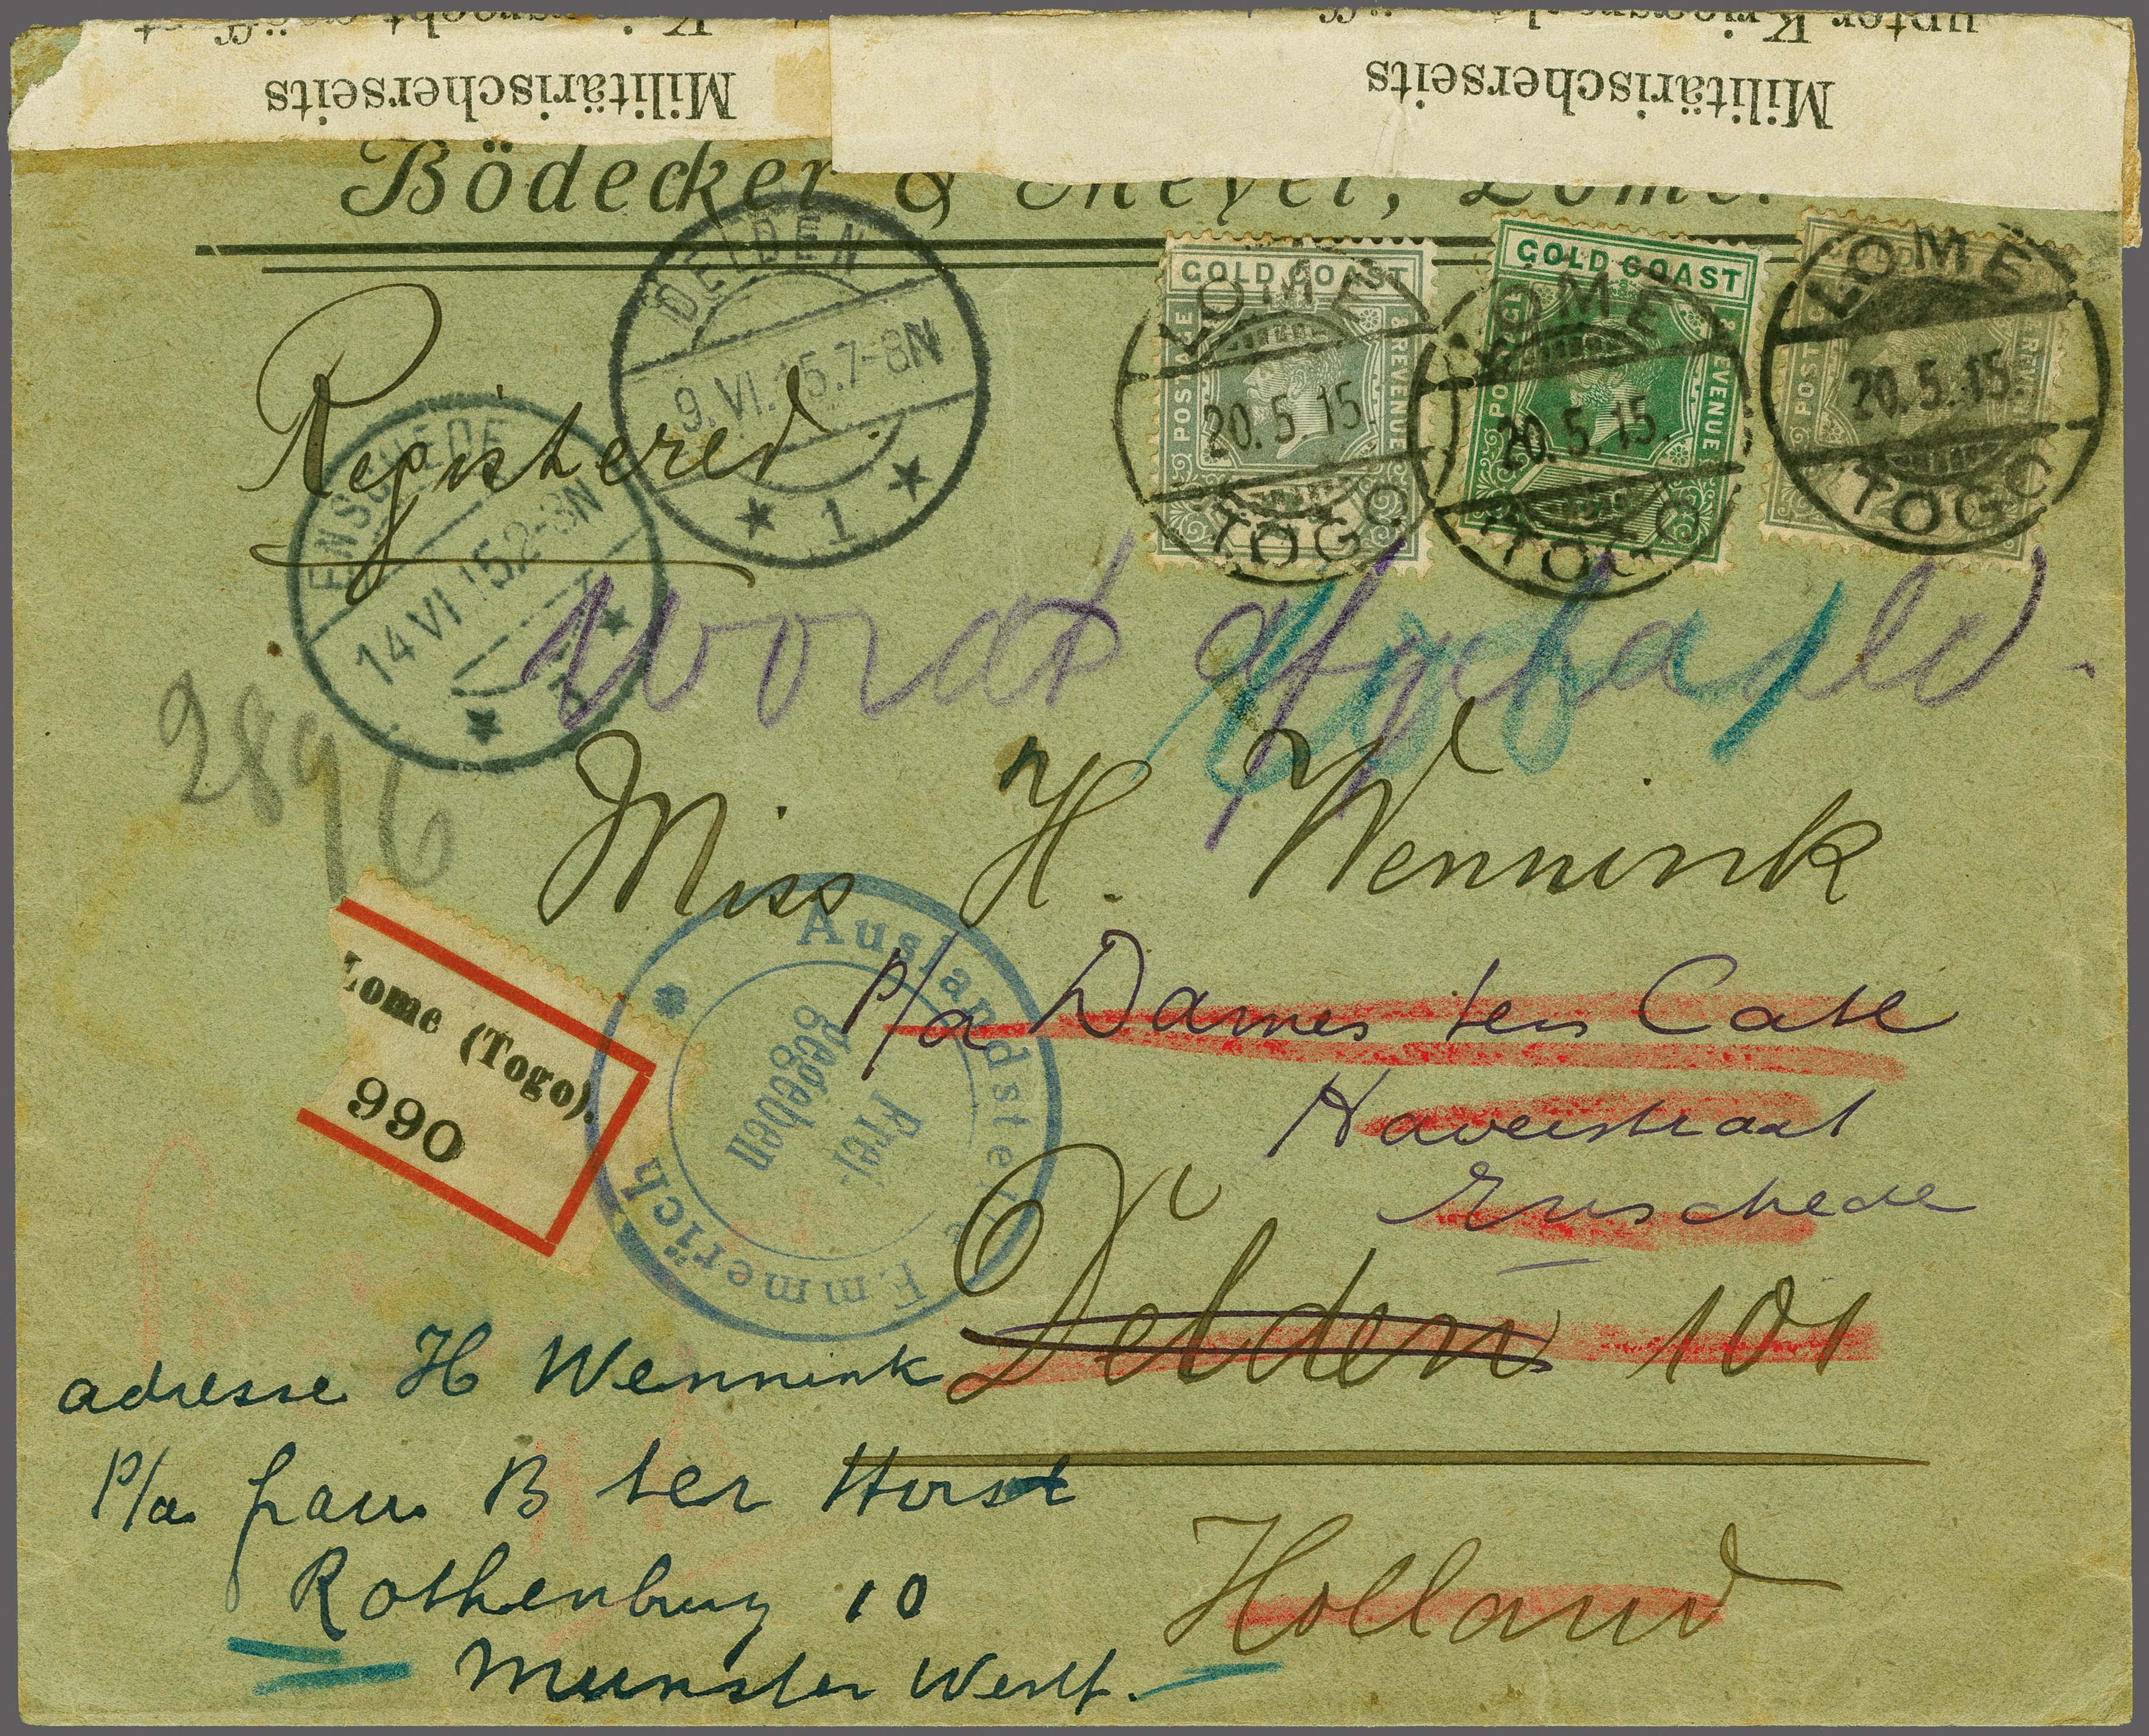 Militärischerseits
Militärischerseits
unter Kriegsrecht
Bödecker & Meyer, Lome.
DELDEN
9.VI.15.7-8N
1
GOLD COAST
POSTAGE & REVENUE
LOME
20.5.15.
TOGO
GOLD COAST
POSTAGE & REVENUE
LOME
20.5.15.
TOGO
GOLD
LOME
20.5.15.
TOGO
Registered.
ENSCHEDE
14 VI 15 2-3N
Wordt afgehaald.
2896
Miss H. Wennink
p/a Dames ten Cate
Haverstraat
Enschede
Delden 101
Holland
Lome (Togo).
990
Auslandstelle Emmerich
Frei
gegeben
adresse H Wennink
P/a frau B ter Horst
Rothenburg 10
Munster Westf.